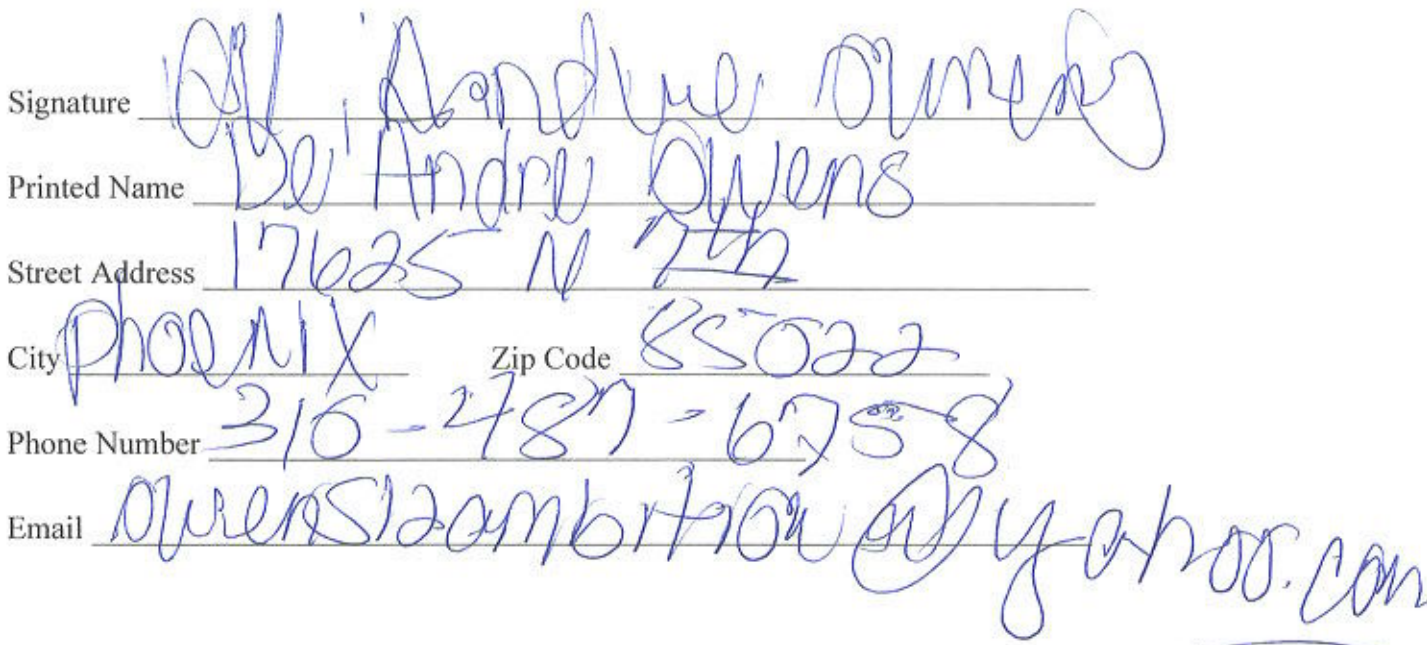 Signature De'Aandre Owens
Printed Name De'Andre Owens
Street Address 17625 N 7th
City Phoenix Zip Code 85022
Phone Number 316-487-6758
Email @yahoo.com